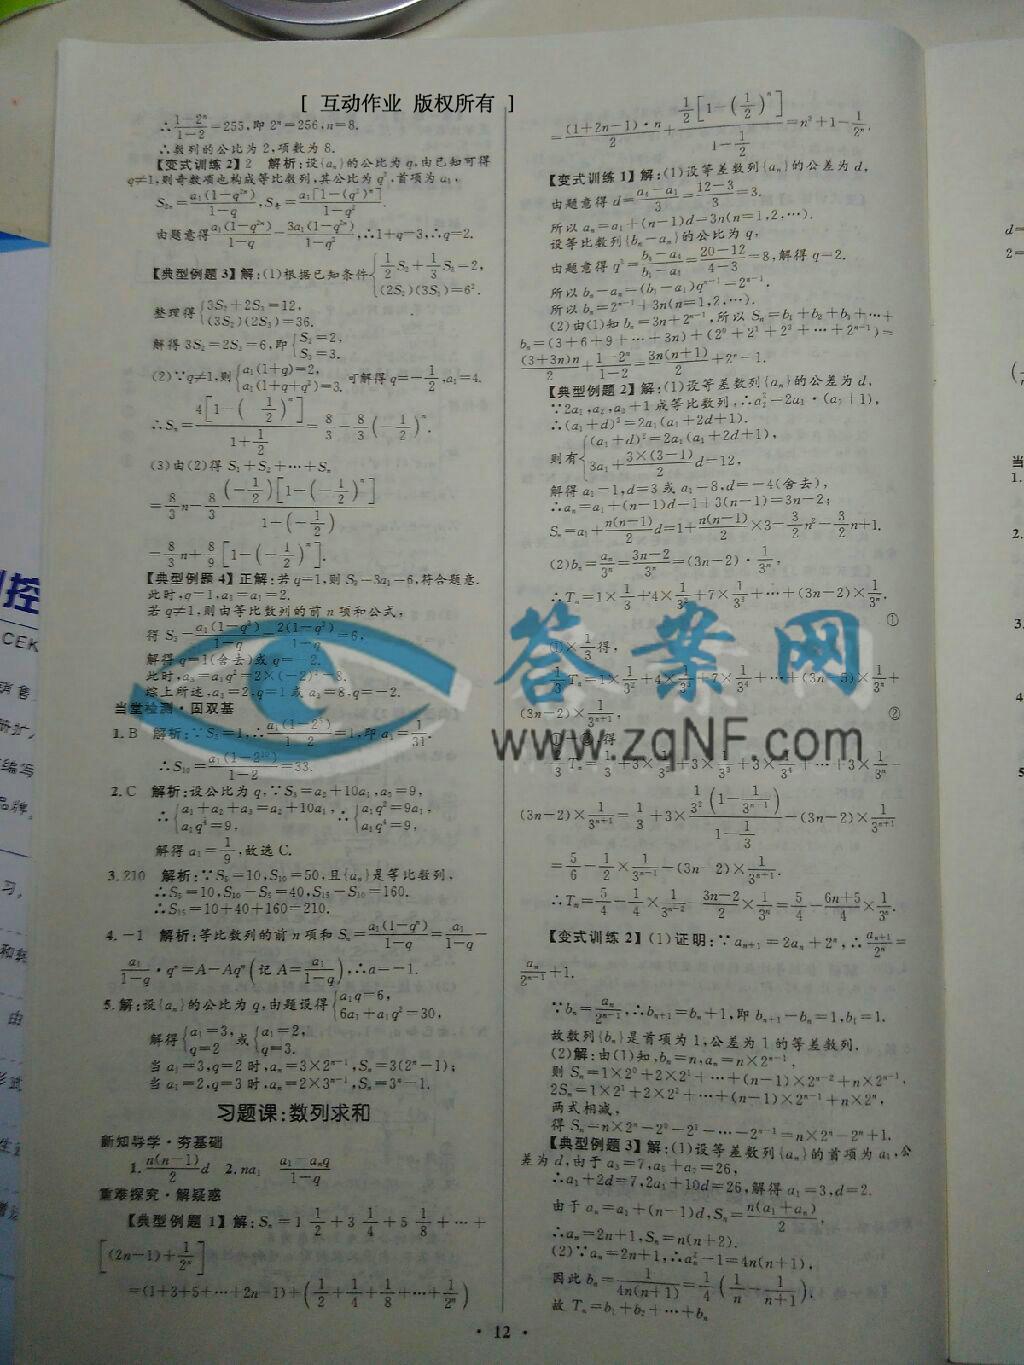 [ 互动作业 版权所有 ]
∴(1-2ⁿ)/(1-2)=255,即 2ⁿ=256,n=8.
∴数列的公比为 2,项数为 8.
【变式训练 2】2 解析:设{aₙ}的公比为 q,由已知可得
q≠1,则奇数项也构成等比数列,其公比为 q²,首项为 a₁,
S₂ₙ=a₁(1-q²ⁿ)/(1-q),S奇=a₁[1-(q²)ⁿ]/(1-q²).
由题意得a₁(1-q²ⁿ)/(1-q)=3a₁(1-q²ⁿ)/(1-q²),∴1+q=3,∴q=2.
【典型例题 3】解:(1)根据已知条件{1/2 S₂+1/3 S₃=2,
(2S₂)(3S₃)=6².
整理得{3S₂+2S₃=12,
(3S₂)(2S₃)=36.
解得 3S₂=2S₃=6,即{S₂=2,
S₃=3.
(2)∵q≠1,则{a₁(1+q)=2,
a₁(1+q+q²)=3. 可解得 q=-1/2,a₁=4.
∴Sₙ=4[1-(-1/2)ⁿ]/(1+1/2)=8/3-8/3(-1/2)ⁿ.
(3)由(2)得 S₁+S₂+…+Sₙ
=8/3n-8/3 (-1/2)[1-(-1/2)ⁿ]/(1-(-1/2))
=8/3n+8/9[1-(-1/2)ⁿ].
【典型例题 4】正解:若 q=1,则 S₃=3a₁=6,符合题意.
此时,q=1,a₃=a₁=2.
若 q≠1,则由等比数列的前 n 项和公式,
得 S₃=a₁(1-q³)/(1-q)=2(1-q³)/(1-q)=6,
解得 q=1(舍去)或 q=-2.
此时,a₃=a₁q²=2×(-2)²=8.
综上所述,a₃=2,q=1 或 a₃=8,q=-2.
当堂检测·固双基
1.B 解析:∵S₅=1,∴a₁(1-2⁵)/(1-2)=1,即 a₁=1/31.
∴S₁₀=a₁(1-2¹⁰)/(1-2)=33.
2.C 解析:设公比为 q,∵S₃=a₂+10a₁,a₅=9,
∴{a₁+a₂+a₃=a₂+10a₁, a₁q⁴=9, ∴{a₁q²=9a₁, a₁q⁴=9,
解得 a₁=1/9,故选 C.
3.210 解析:∵S₅=10,S₁₀=50,且{aₙ}是等比数列,
∴S₅=10,S₁₀-S₅=40,S₁₅-S₁₀=160.
∴S₁₅=10+40+160=210.
4.-1 解析:等比数列的前 n 项和 Sₙ=a₁(1-qⁿ)/(1-q)=a₁/(1-q)-
a₁/(1-q)·qⁿ=A-Aqⁿ(记 A=a₁/(1-q)),∴a=-1.
5.解:设{aₙ}的公比为 q,由题设得{a₁q=6,
6a₁+a₁q²=30,
解得{a₁=3, q=2 或{a₁=2, q=3.
当 a₁=3,q=2 时,aₙ=3×2ⁿ⁻¹,Sₙ=3(2ⁿ-1);
当 a₁=2,q=3 时,aₙ=2×3ⁿ⁻¹,Sₙ=3ⁿ-1.
习题课:数列求和
新知导学·夯基础
1.n(n-1)/2 d 2.na₁ (a₁-aₙq)/(1-q)
重难探究·解疑惑
【典型例题 1】解:Sₙ=1 1/2+3 1/4+5 1/8+…+
[(2n-1)+1/2ⁿ]
=(1+3+5+…+2n-1)+(1/2+1/4+1/8+…+1/2ⁿ)
=(1+2n-1)·n/2+1/2[1-(1/2)ⁿ]/(1-1/2)=n²+1-1/2ⁿ.
【变式训练 1】解:(1)设等差数列{aₙ}的公差为 d,
由题意得 d=(a₄-a₁)/3=(12-3)/3=3.
所以 aₙ=a₁+(n-1)d=3n(n=1,2,…).
设等比数列{bₙ-aₙ}的公比为 q,
由题意得 q³=(b₄-a₄)/(b₁-a₁)=(20-12)/(4-3)=8,解得 q=2.
所以 bₙ-aₙ=(b₁-a₁)qⁿ⁻¹=2ⁿ⁻¹.
所以 bₙ=2ⁿ⁻¹+3n(n=1,2,…).
(2)由(1)知 bₙ=3n+2ⁿ⁻¹,所以 Sₙ=b₁+b₂+b₃+…+
bₙ=(3+6+9+…+3n)+(2⁰+2¹+2²+…+2ⁿ⁻¹)=
(3+3n)n/2+(1-2ⁿ)/(1-2)=3n(n+1)/2+2ⁿ-1.
【典型例题 2】解:(1)设等差数列{aₙ}的公差为 d,
∵2a₁,a₂,a₃+1 成等比数列,∴a₂²=2a₁·(a₃+1),
∴(a₁+d)²=2a₁(a₁+2d+1).
则有{(a₁+d)²=2a₁(a₁+2d+1),
3a₁+3×(3-1)/2 d=12,
解得 a₁=1,d=3 或 a₁=8,d=-4(舍去),
∴aₙ=a₁+(n-1)d=1+3(n-1)=3n-2;
Sₙ=a₁+n(n-1)/2 d=1+n(n-1)/2×3=3/2n²-3/2n+1.
(2)bₙ=aₙ/3ⁿ=(3n-2)/3ⁿ=(3n-2)·1/3ⁿ,
∴Tₙ=1×1/3+4×1/3²+7×1/3³+…+(3n-2)×1/3ⁿ,
①
①×1/3得,
1/3Tₙ=1×1/3²+4×1/3³+7×1/3⁴+…+(3n-5)×1/3ⁿ+
(3n-2)×1/3ⁿ⁺¹, ②
①-②得
2/3Tₙ=1/3+3×1/3²+3×1/3³+3×1/3⁴+…+3×1/3ⁿ-
(3n-2)×1/3ⁿ⁺¹=1/3+3×1/3²(1-1/3ⁿ⁻¹)/(1-1/3)-(3n-2)×1/3ⁿ⁺¹
=5/6-1/2×1/3ⁿ⁻¹-(3n-2)×1/3ⁿ⁺¹.
∴Tₙ=5/4-1/4×1/3ⁿ⁻²-(3n-2)/2×1/3ⁿ=5/4-(6n+5)/4×1/3ⁿ.
【变式训练 2】(1)证明:∵aₙ₊₁=2aₙ+2ⁿ,∴aₙ₊₁/2ⁿ=
aₙ/2ⁿ⁻¹+1.
∵bₙ=aₙ/2ⁿ⁻¹,∴bₙ₊₁=bₙ+1,即 bₙ₊₁-bₙ=1,b₁=1.
故数列{bₙ}是首项为 1,公差为 1 的等差数列.
(2)解:由(1)知,bₙ=n,aₙ=n×2ⁿ⁻¹,
则 Sₙ=1×2⁰+2×2¹+…+(n-1)×2ⁿ⁻²+n×2ⁿ⁻¹,
2Sₙ=1×2¹+2×2²+…+(n-1)×2ⁿ⁻¹+n×2ⁿ,
两式相减,
得 Sₙ=n×2ⁿ-2⁰-2¹-…-2ⁿ⁻¹=n×2ⁿ-2ⁿ+1.
【典型例题 3】解:(1)设等差数列{aₙ}的首项为 a₁,公
差为 d,由于 a₃=7,a₅+a₇=26,
∴a₁+2d=7,2a₁+10d=26,解得 a₁=3,d=2.
由于 aₙ=a₁+(n-1)d,Sₙ=n(a₁+aₙ)/2,
∴aₙ=2n+1,Sₙ=n(n+2).
(2)∵aₙ=2n+1,∴aₙ²-1=4n(n+1),
因此 bₙ=1/4n(n+1)=1/4(1/n-1/(n+1)).
故 Tₙ=b₁+b₂+…+bₙ
· 12 ·
答案网
www.zqNF.com